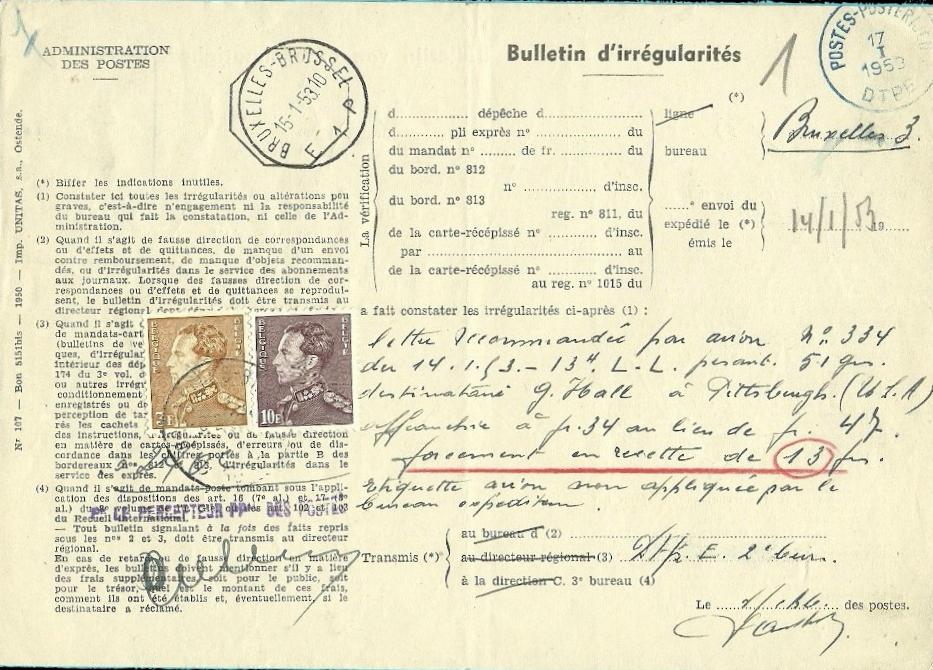 ADMINISTRATION
DES POSTES
BRUXELLES-BRUSSEL
15-1-53.10
E 1 P
Bulletin d'irrégularités
1
17
I
1953
(*)
d............ dépêche d............
d............ pli express n° ............ du
du mandat n° ......... de fr. ......... du
du bord. n° 812
n° ............ d'insc.
du bord. n° 813
reg. n° 811, du
de la carte-récépissé n° ............ d'insc.
par ........................ au
de la carte-récépissé n° ............ d'insc.
au reg. n° 1015 du
La vérification
ligne
bureau
Bruxelles 3.
......° envoi du
expédié le (*)
émis le
14/1/53 19......
Nr 107 — Bon 5151bis — 1950 — Imp. UNITAS, s.a., Ostende.
(*) Biffer les indications inutiles.
(1) Constater ici toutes les irrégularités ou altérations peu
graves, c'est-à-dire n'engagement ni la responsabilité
du bureau qui fait la constatation, ni celle de l'Ad-
ministration.
(2) Quand il s'agit de fausse direction de correspondances
ou d'effets et de quittances, de manque d'un envoi
contre remboursement, de manque d'objets recomman-
dés, ou d'irrégularités dans le service des abonnements
aux journaux. Lorsque des fausses direction de cor-
respondances ou d'effets et de quittances se reprodui-
sent, le bulletin d'irrégularités doit être transmis au
directeur régional
(3) Quand il s'agit
de mandats-cart
(bulletins de ve
ques, d'irrégular
intérieur des dép
174 du 3e vol. d
ou autres irrégr
conditionnement
enregistrés ou de
perception de tax
rés les cachets
des instructions, d'irrégularités ou de fausse direction
en matière de cartes-récépissés, d'erreurs ou de dis-
cordance dans les chiffres portés à la partie B des
bordereaux nos 812 et 813, d'irrégularités dans le
service des exprès.
(4) Quand il s'agit de mandats-poste tombant sous l'appli-
cation des dispositions des art. 16 (7e al.) et 17 (8e
al.) du
102 et 103
du Recueil international.
— Tout bulletin signalant à la fois des faits repris
sous les nos 2 et 3, doit être transmis au directeur
régional.
En cas de retard ou de fausse direction en matière
d'exprès, les bulletins doivent mentionner s'il y a lieu
des frais supplé soit pour le public, soit
pour le trésor, quel est le montant de ces frais,
comment ils ont été établis et, éventuellement, si le
destinataire a réclamé.
BELGIQUE BELGIE
3F
BELGIQUE BELGIE
10F
LE PERCEPTEUR PP DES POSTES
a fait constater les irrégularités ci-après (1) :
lettre recommandée par avion N° 334
du 14.1.53 - 13H L.L. pesant 51 grs.
destinataire G. Hall à Pittsburgh (U.S.A)
affranchie à fr. 34 au lieu de fr. 47
forcement en recette de 13 frs.
Etiquette avion non appliquée par le
bureau expéditeur.
Transmis (*)
au bureau d (2)
au directeur régional (3)
à la direction C. 3e bureau (4)
Le .................. des postes.